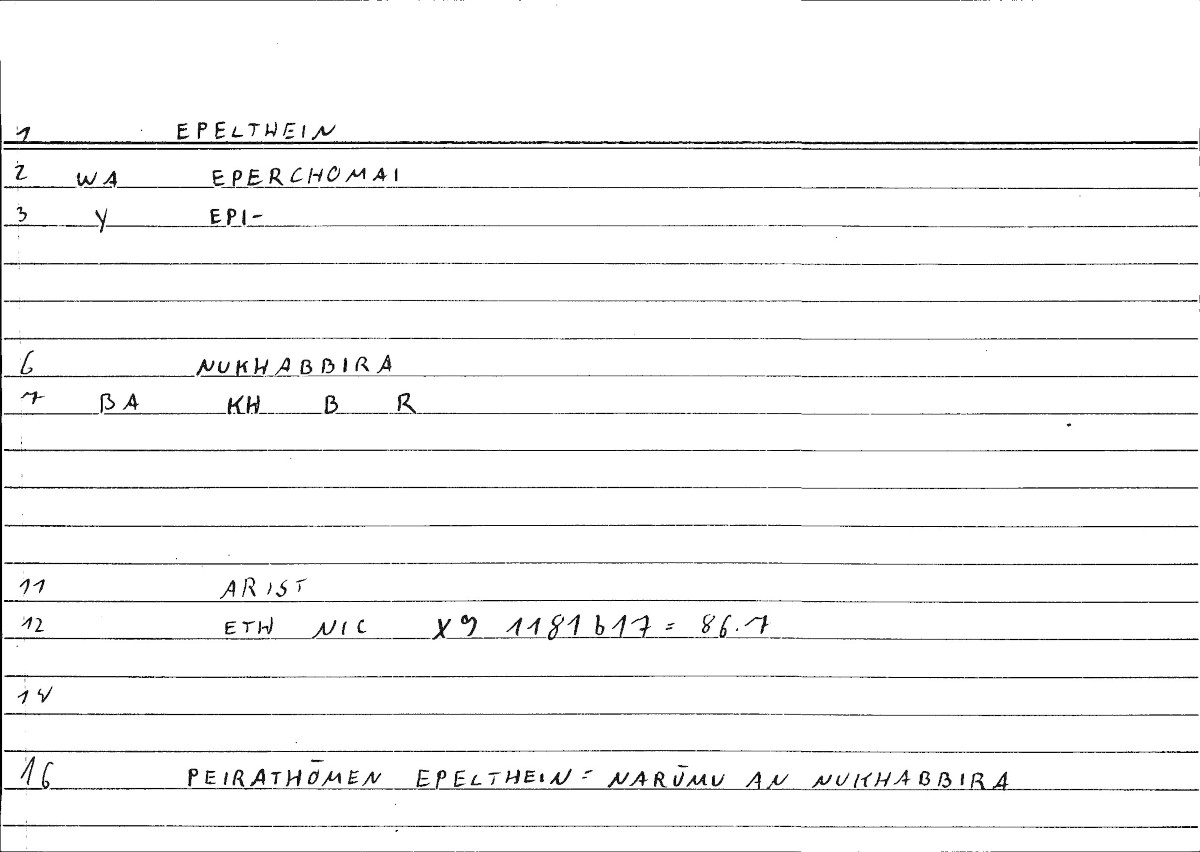 1 EPELTHEIN
2 WA EPERCHOMAI
3 Y EPI-
6 NUKHABBIRA
7 BA KH B R
11 ARIST
12 ETH NIC X9 1181b17 = 86.7
14
16 PEIRATHŌMEN EPELTHEIN = NARŪMU AN NUKHABBIRA